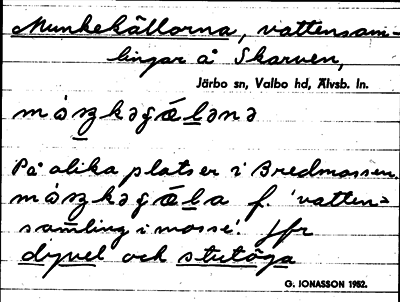 Munkekällorna, vattensam-
lingar å Skarven,
Järbo sn, Valbo hd, Älvsb. ln.
På olika platser i Bredmossen.
f. 'vatten-
samling i mosse'. Jfr
dyvel och stutöga
G. IONASSON 1962.